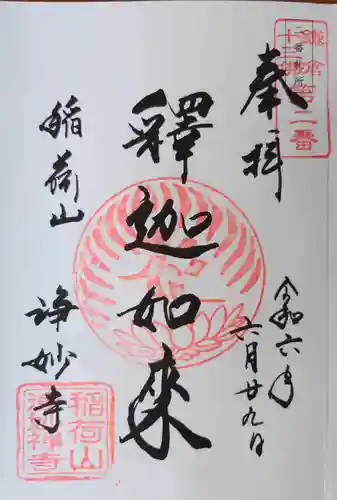 奉拝
令和六年
六月廿九日
釋迦如来
稲荷山
浄妙寺
鎌倉
十三佛
第二番
稲荷山
浄妙禅寺